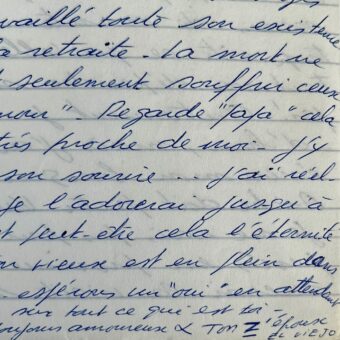 vaillé toute son existence
la retraite. La mort ne
t seulement souffrir ceux
mour". Regarde "Jaja" cela
très proche de moi. J'y
son sourire... j'ai réel-
je l'adorerai jusqu'à
t peut-être cela l'éternité
vieux est en plein dans
espérons un "oui" en attendant
sur tout ce qui est toi -
toujours amoureux & Ton époux